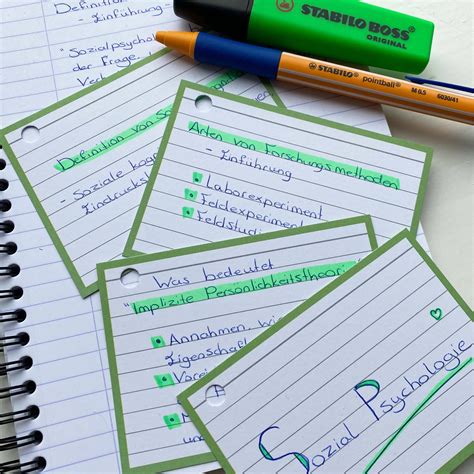 Definition
- Einführung-
"Sozialpsycho
der Frage,
STABILO BOSS
ORIGINAL
STABILO pointball M 0.5 6030/41
Definition von
- Soziale
Eindrucks
Arten von Forschungsmethoden
- Einführung
• Laborexperiment
• Feldexperiment
• Feldstudi
Was bedeutet
"Implizite Persönlichkeitstheori
• Annahmen, wi
Eigenschaf
• Vorei
un
Sozial Psychologie